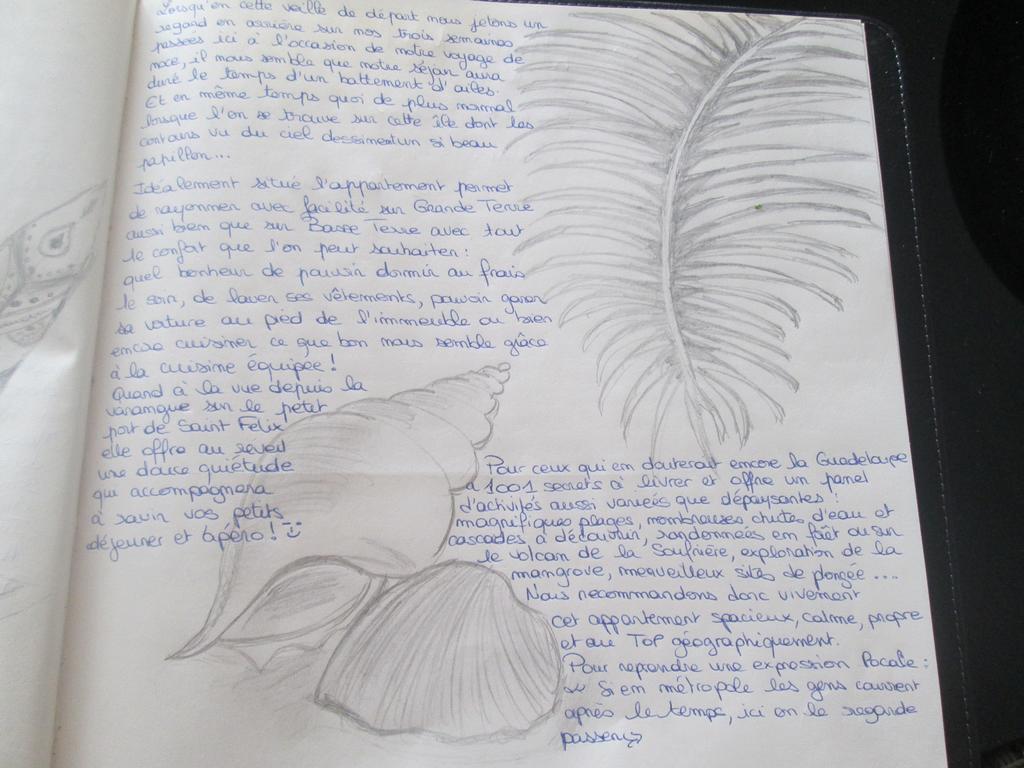 Lorsqu'en cette veille de départ nous jetons un
regard en arrière sur nos trois semaines
passées ici à l'occasion de notre voyage de
noce, il nous semble que notre séjour aura
duré le temps d'un battement d'ailes.
Et en même temps quoi de plus normal
lorsque l'on se trouve sur cette île dont les
contours vu du ciel dessinent un si beau
papillon...
Idéalement situé l'appartement permet
de rayonner avec facilité sur Grande Terre
aussi bien que sur Basse Terre avec tout
le confort que l'on peut souhaiter :
quel bonheur de pouvoir dormir au frais
le soir, de laver ses vêtements, pouvoir garer
sa voiture au pied de l'immeuble ou bien
encore cuisiner ce que bon nous semble grâce
à la cuisine équipée !
Quand à la vue depuis la
varangue sur le petit
port de Saint Felix
elle offre au réveil
une douce quiétude
qui accompagnera
à ravir vos petits
déjeuner et apéro !
Pour ceux qui en douterait encore la Guadeloupe
a 1001 secrets à livrer et offre un panel
d'activités aussi variées que dépaysantes :
magnifiques plages, nombreuses chutes d'eau et
cascades à découvrir, randonnées en forêt ou sur
le volcan de la Soufrière, exploration de la
mangrove, merveilleux sites de plongée ....
Nous recommandons donc vivement
cet appartement spacieux, calme, propre
et au TOP géographiquement.
Pour reprendre une expression locale :
« Si en métropole les gens courent
après le temps, ici on le regarde
passer »